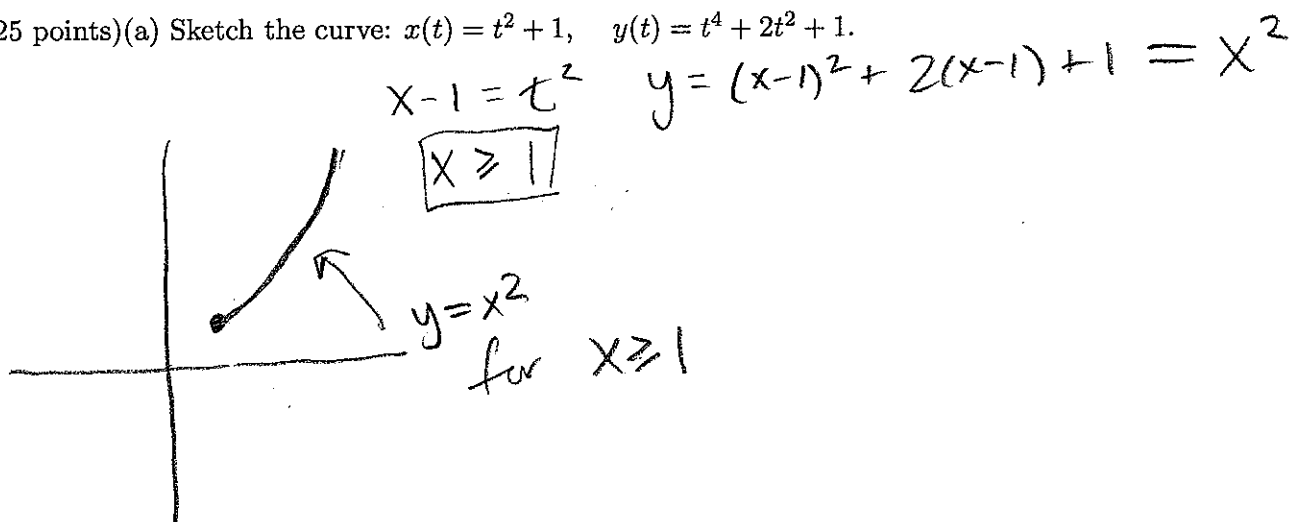 25 points)(a) Sketch the curve: x(t) = t² + 1, y(t) = t⁴ + 2t² + 1.
x-1 = t² y = (x-1)² + 2(x-1) + 1 = x²
x ≥ 1
y = x²
for x ≥ 1